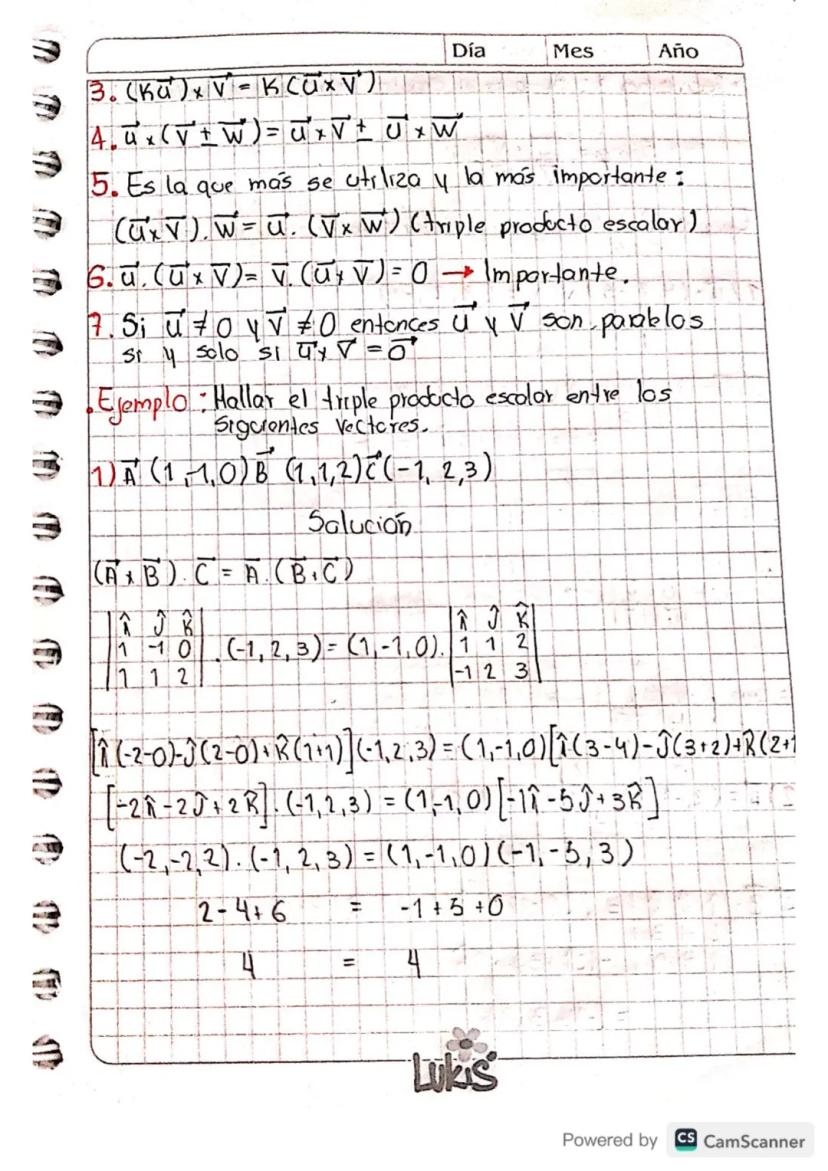 Día Mes Año
3. (Ku⃗) x v⃗ = K(u⃗ x v⃗)
4. u⃗ x (v⃗ ± w⃗) = u⃗ x v⃗ ± u⃗ x w⃗
5. Es la que más se utiliza y la más importante:
(u⃗ x v⃗). w⃗ = u⃗. (v⃗ x w⃗) (triple producto escalar)
6. u⃗. (u⃗ x v⃗) = v⃗. (u⃗ x v⃗) = 0 → Importante.
7. Si u⃗ ≠ 0 y v⃗ ≠ 0 entonces u⃗ y v⃗ son paralelos
si y solo si u⃗ x v⃗ = 0⃗
.Ejemplo: Hallar el triple producto escalar entre los
siguientes vectores.
1) A⃗ (1,-1,0) B⃗ (1,1,2) C⃗ (-1, 2,3)
Solución
(A⃗ x B⃗). C⃗ = A⃗. (B⃗.C⃗)
|î ĵ k̂| |î ĵ k̂|
|1 -1 0| .(-1, 2, 3) = (1,-1,0). |1 1 2|
|1 1 2| |-1 2 3|
[î(-2-0)-ĵ(2-0)+k̂(1+1)](-1,2,3) = (1,-1,0)[î(3-4)-ĵ(3+2)+k̂(2+1
[-2î-2ĵ+2k̂].(-1,2,3) = (1,-1,0)[-1î-5ĵ+3k̂]
(-2,-2,2).(-1, 2, 3) = (1,-1,0)(-1,-5, 3)
2-4+6 = -1+5+0
4 = 4
Lukis
Powered by CS CamScanner